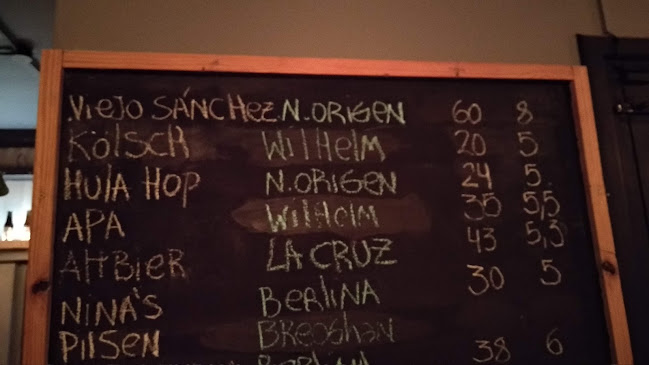 VIEJO SÁNCHEZ N.ORIGEN 60 8
KÖLSCH WILHELM 20 5
HULA HOP N.ORIGEN 24 5
APA WILHELM 35 5,5
ALTBIER LA CRUZ 43 5,3
NINA'S BERLINA 30 5
PILSEN BREOGHAN
38 6